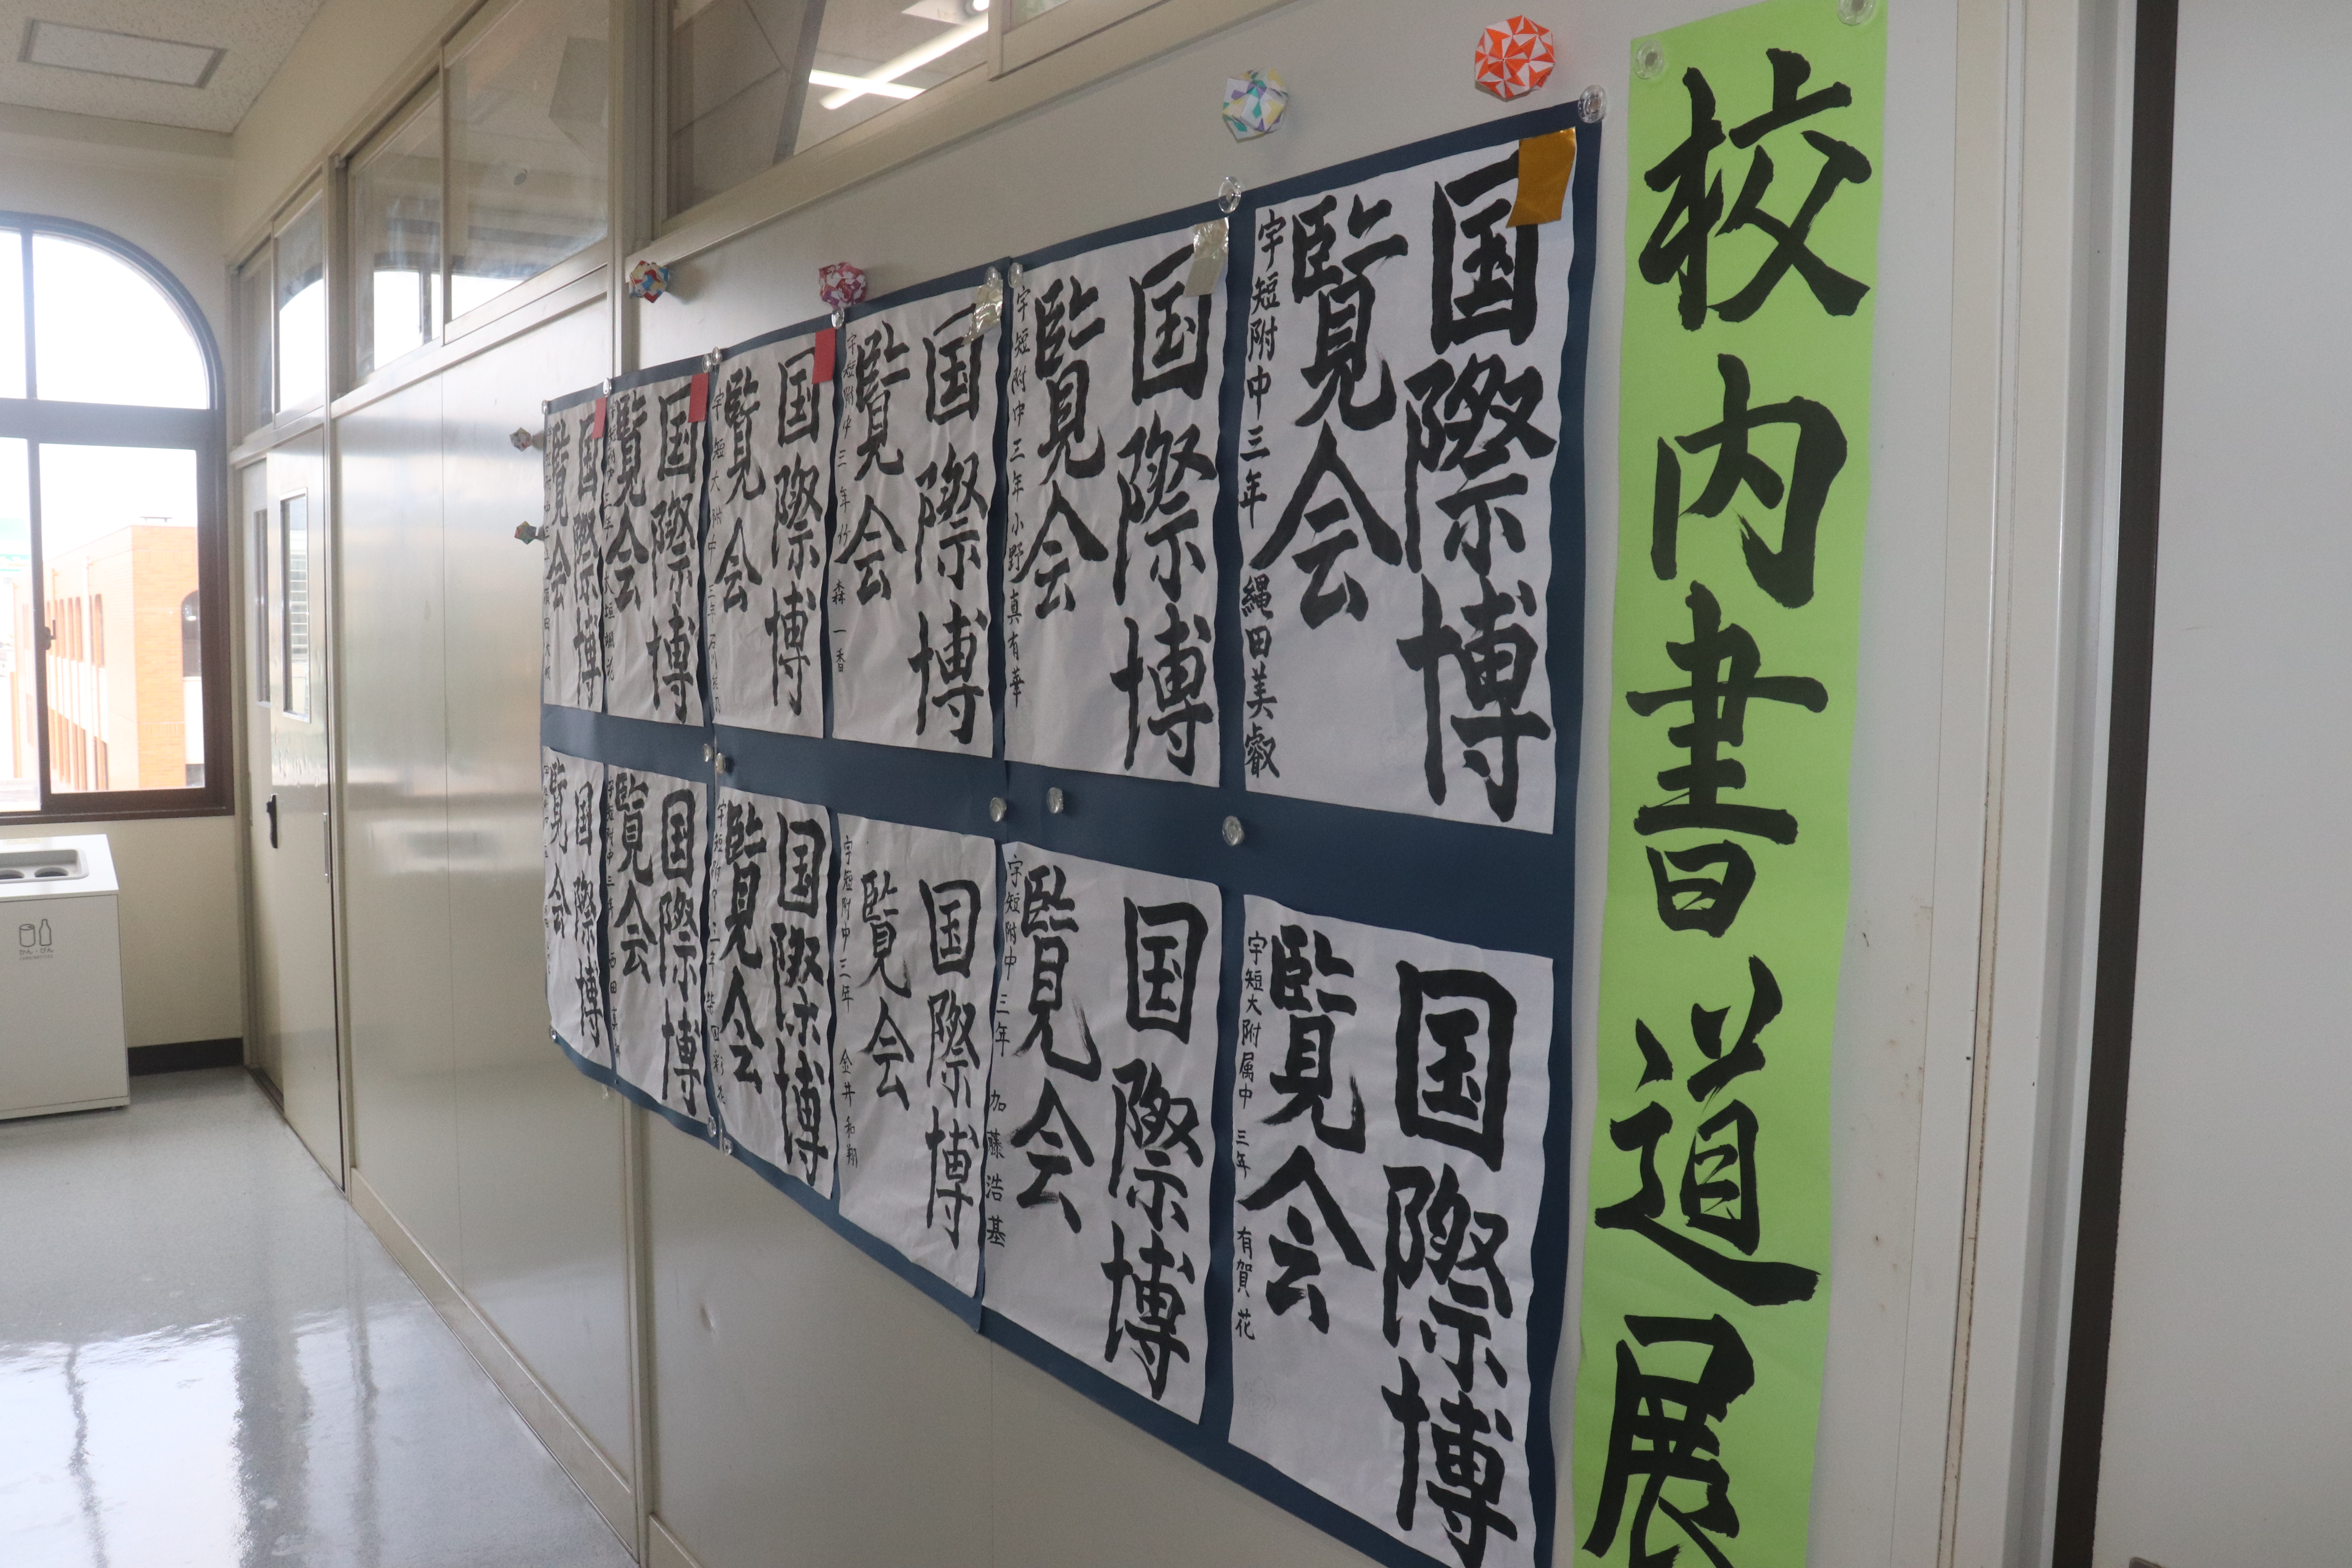 校内書道展
国際博
覧会
宇短附中三年 縄田美叡
国際博
覧会
宇短附中三年 小野真有華
国際博
覧会
宇短附中三年 竹森一香
国際博
覧会
宇短大附中三年
国際博
覧会
国際博
覧会
国際博
覧会
宇短大附属中 三年 有賀花
国際博
覧会
宇短附中 三年 加藤浩基
国際博
覧会
宇短附中三年 金井和翔
国際博
覧会
国際博
覧会
宇短附中三年 西田
国際博
覧会
かん・びん